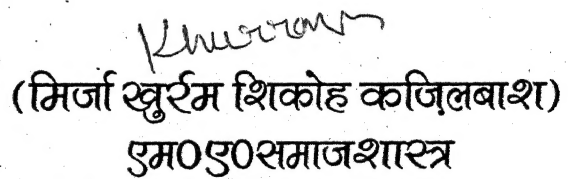 Khurram
(मिर्जा खुर्रम शिकोह कजि़लबाश)
एम0ए0समाजशास्त्र